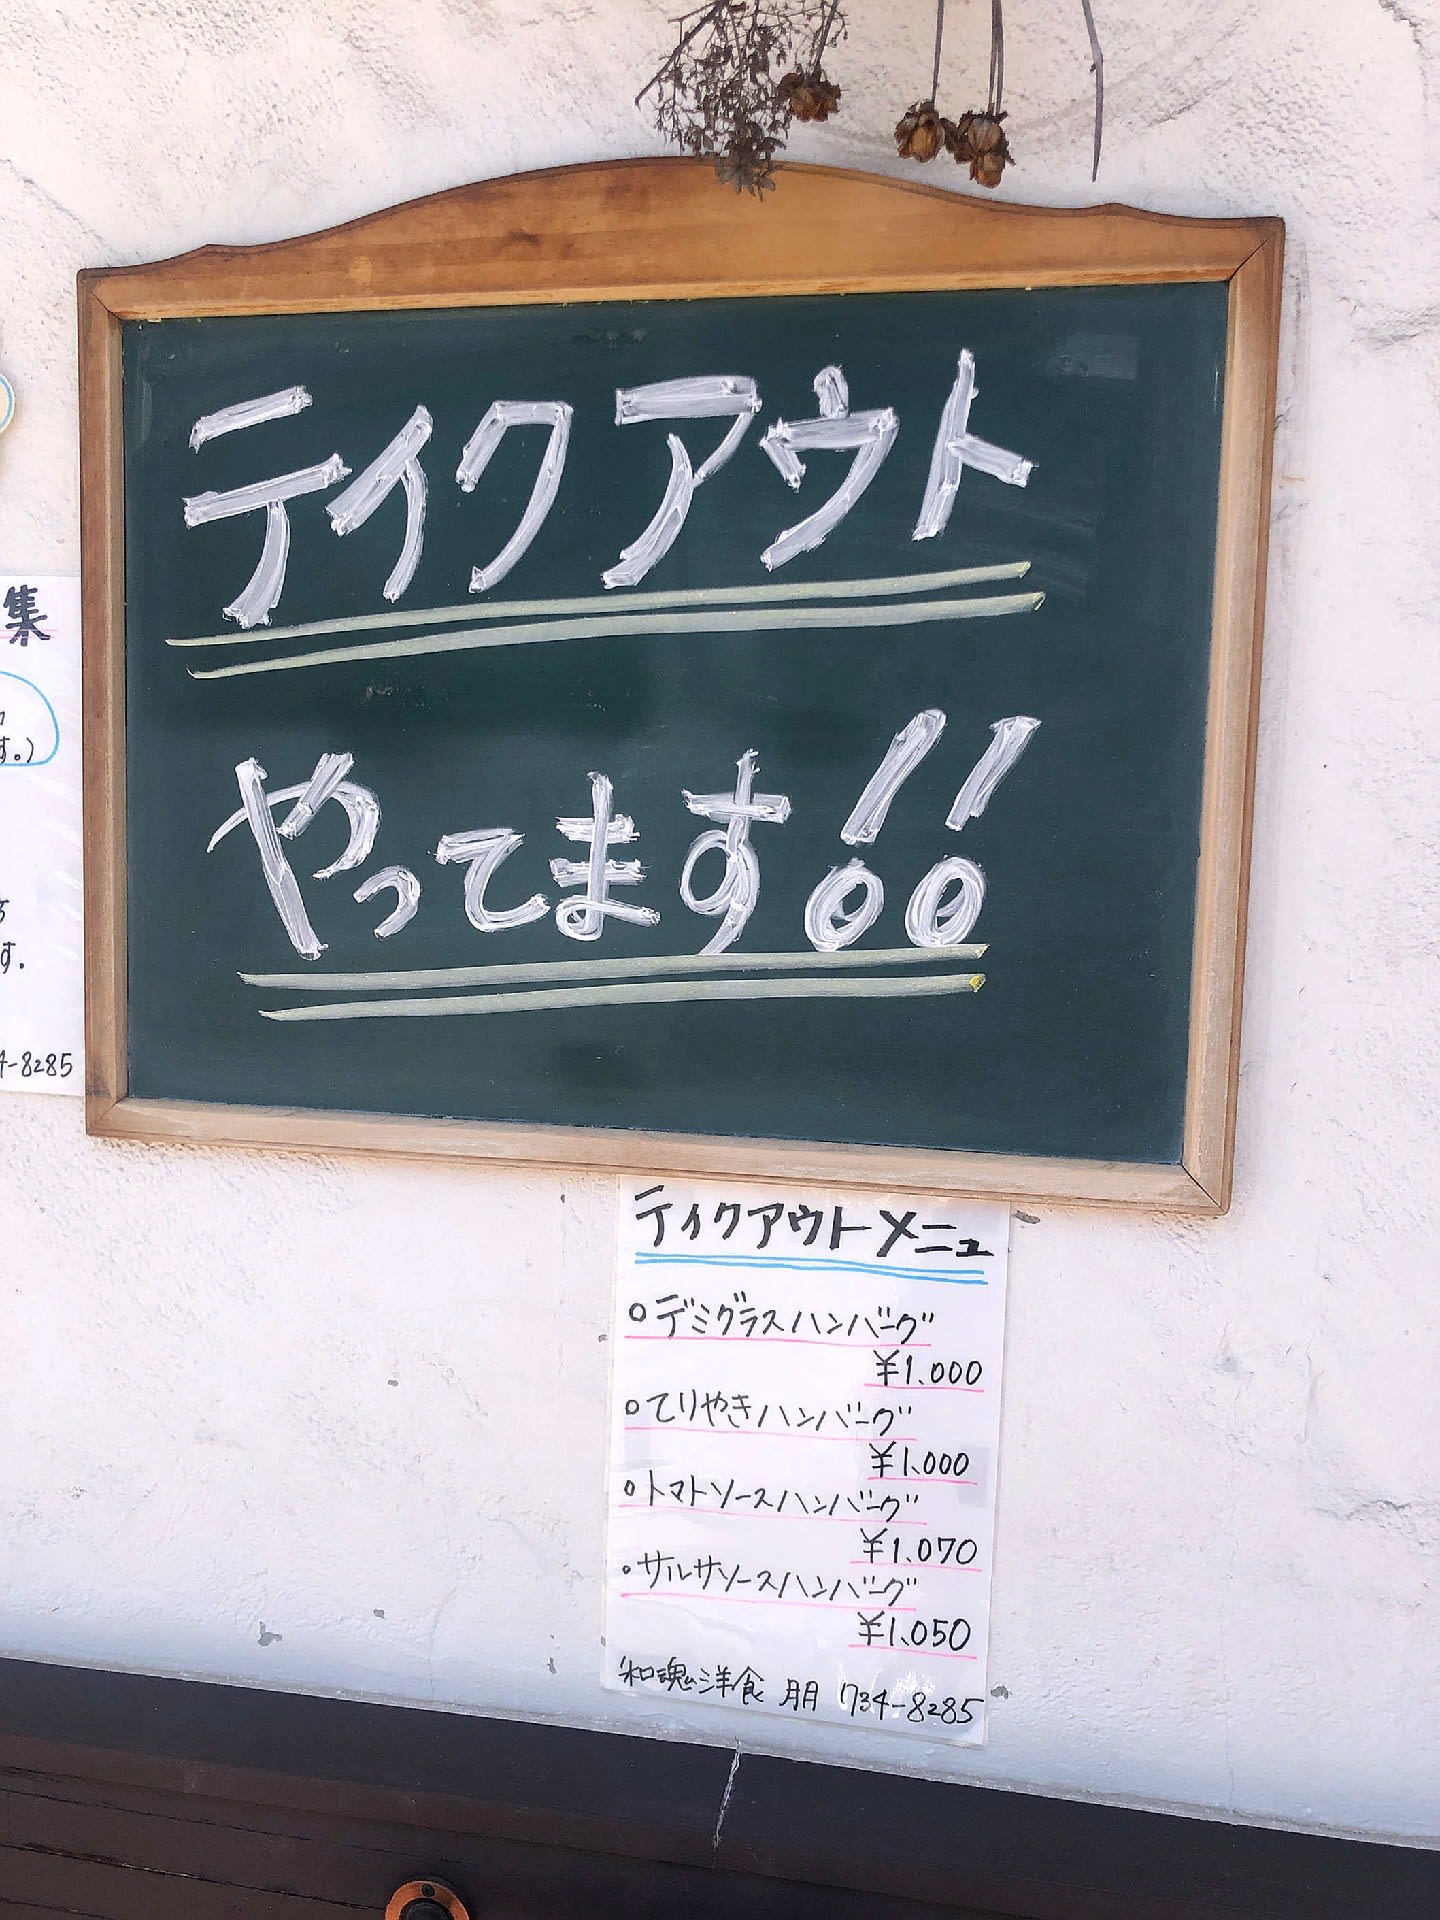 テイクアウト
やってます!!
テイクアウトメニュ
○デミグラスハンバーグ
¥1.000
○てりやきハンバーグ
¥1.000
○トマトソースハンバーグ
¥1.070
○サルサソースハンバーグ
¥1.050
和魂洋食 朋 734-8285
集
す。)
す.
4-8285